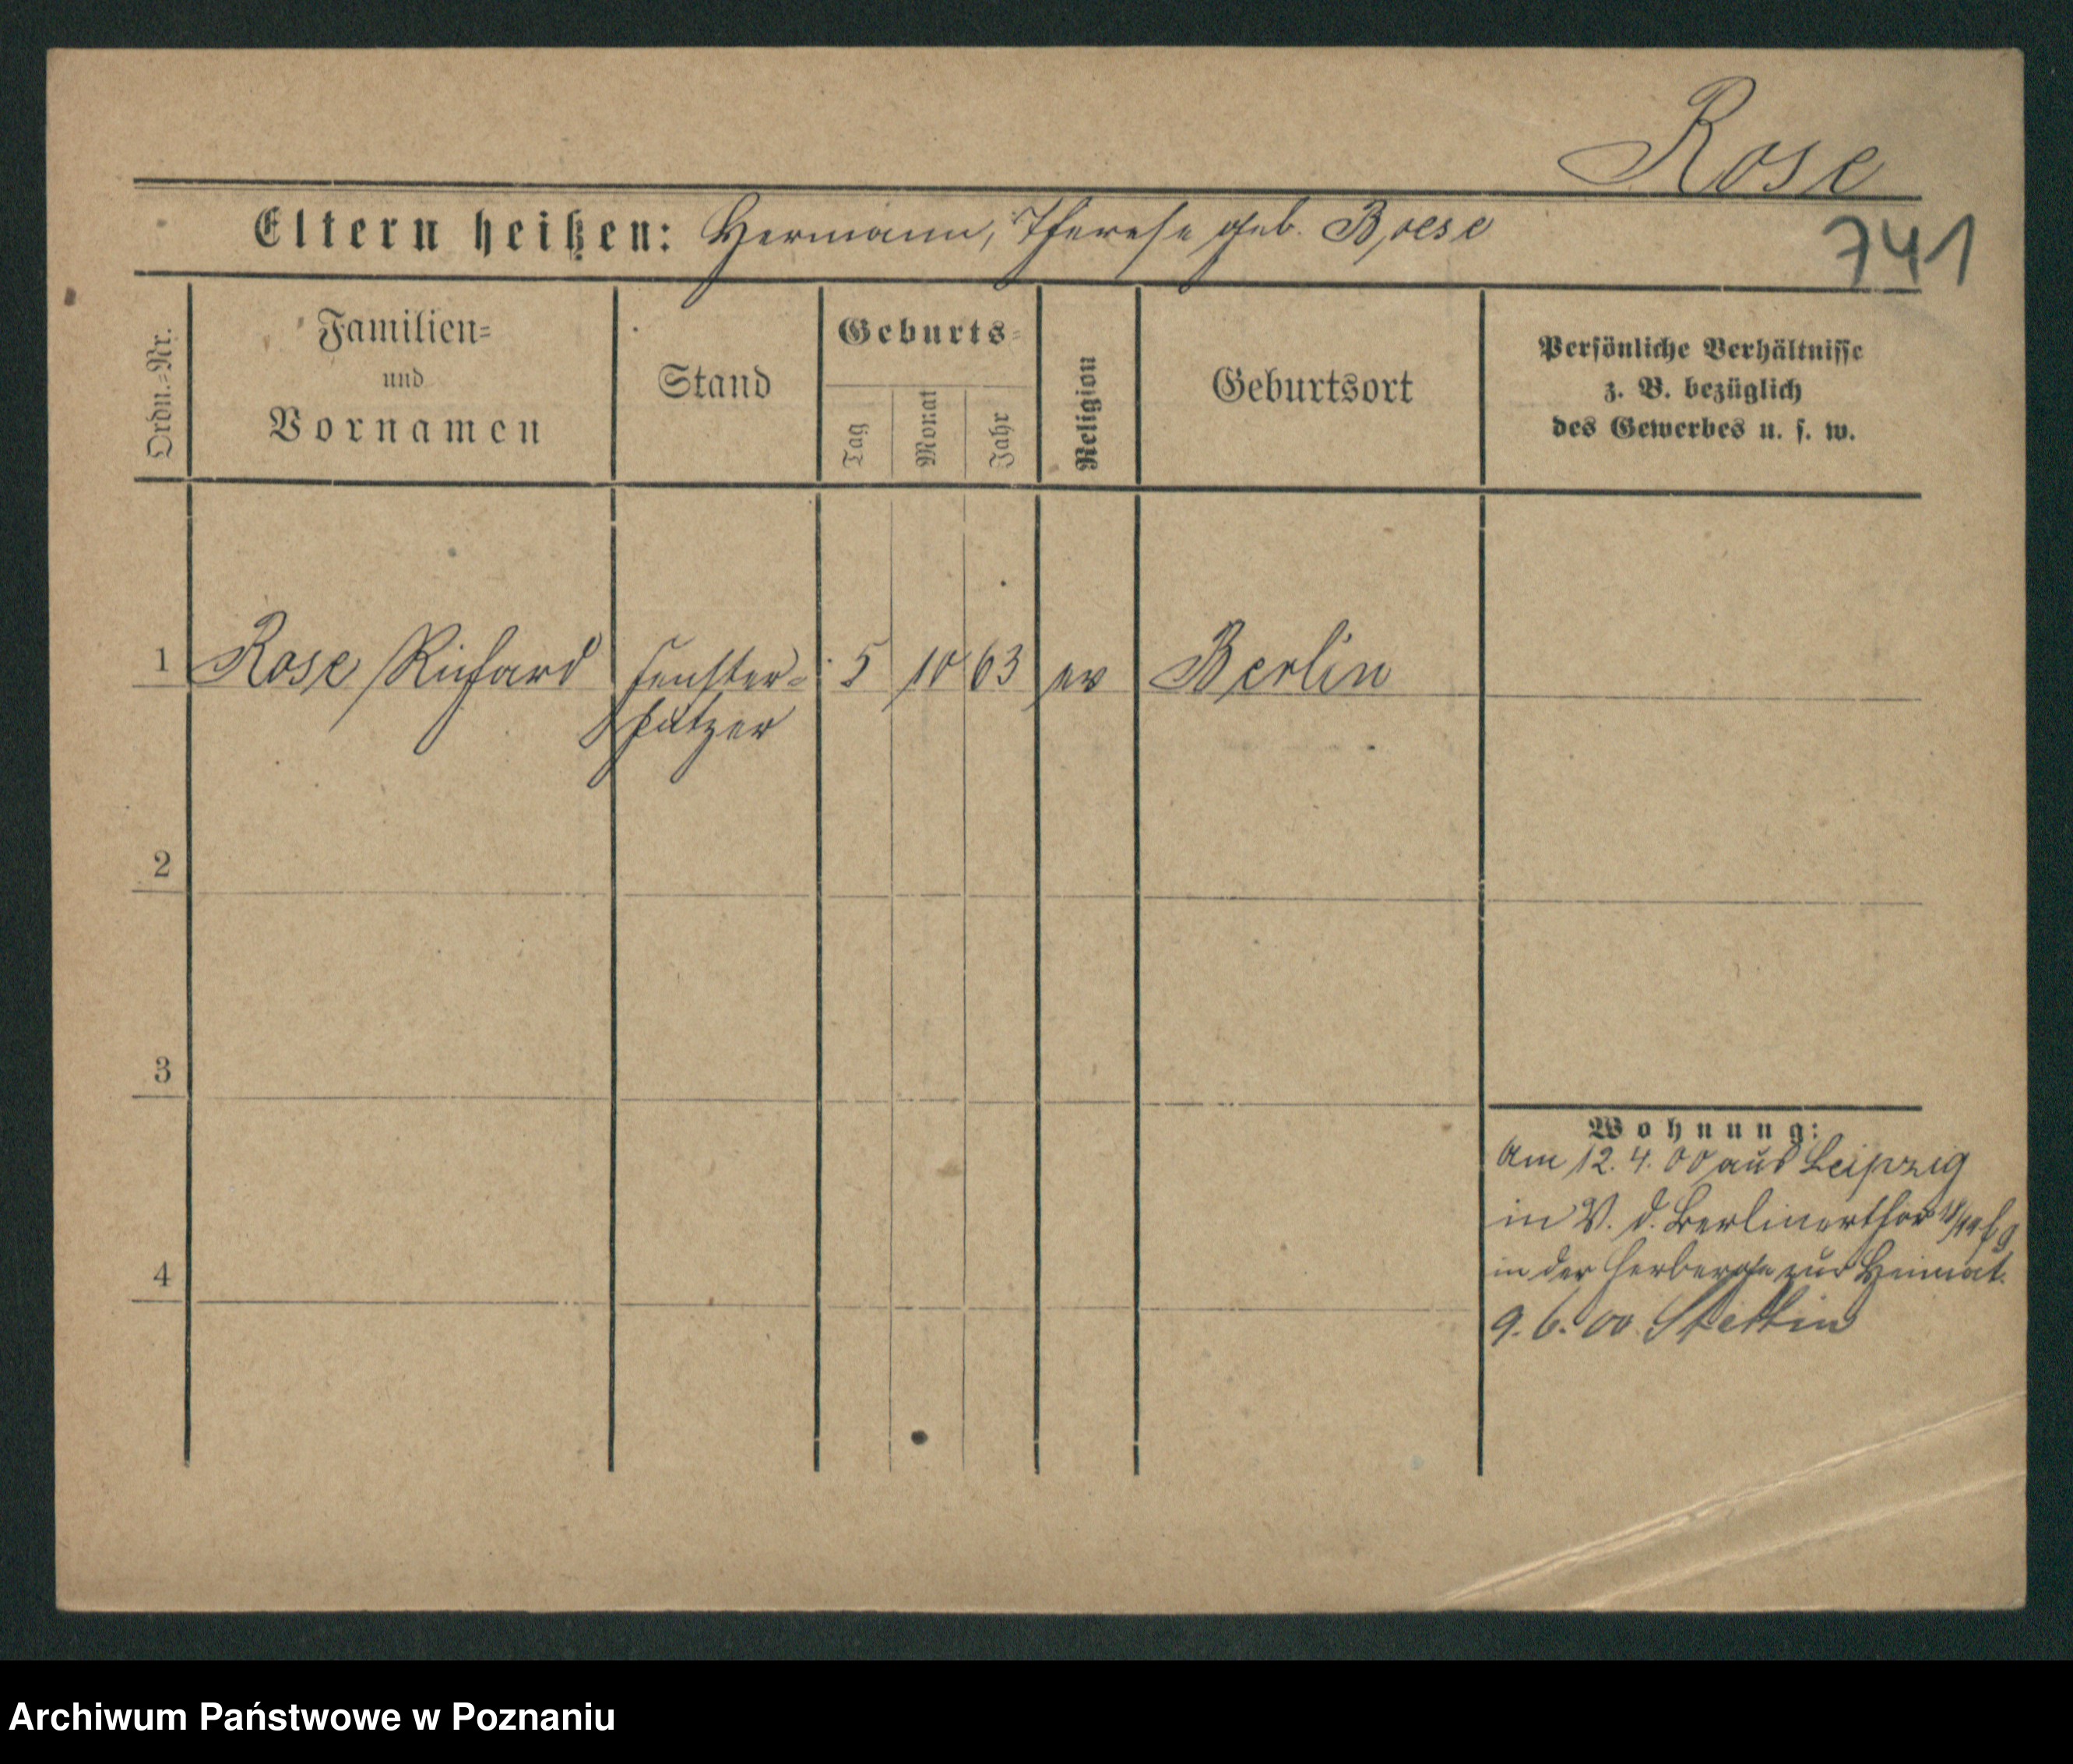 Rose
Eltern heißen: Hermann, Therese geb. Boese
741
Ordn.=Nr.
Familien=
und
Vornamen
Stand
Geburts=
Tag
Monat
Jahr
Religion
Geburtsort
Persönliche Verhältnisse
z. B. bezüglich
des Gewerbes u. s. w.
1 Rose Richard Fenster= 5 10 63 ev Berlin
putzer
2
3
4
Wohnung:
Am 12. 4. 00 aus Leipzig
in V. d. Berlinerthor
in der Herberge zur Heimat.
9. 6. 00 Stettin
Archiwum Państwowe w Poznaniu